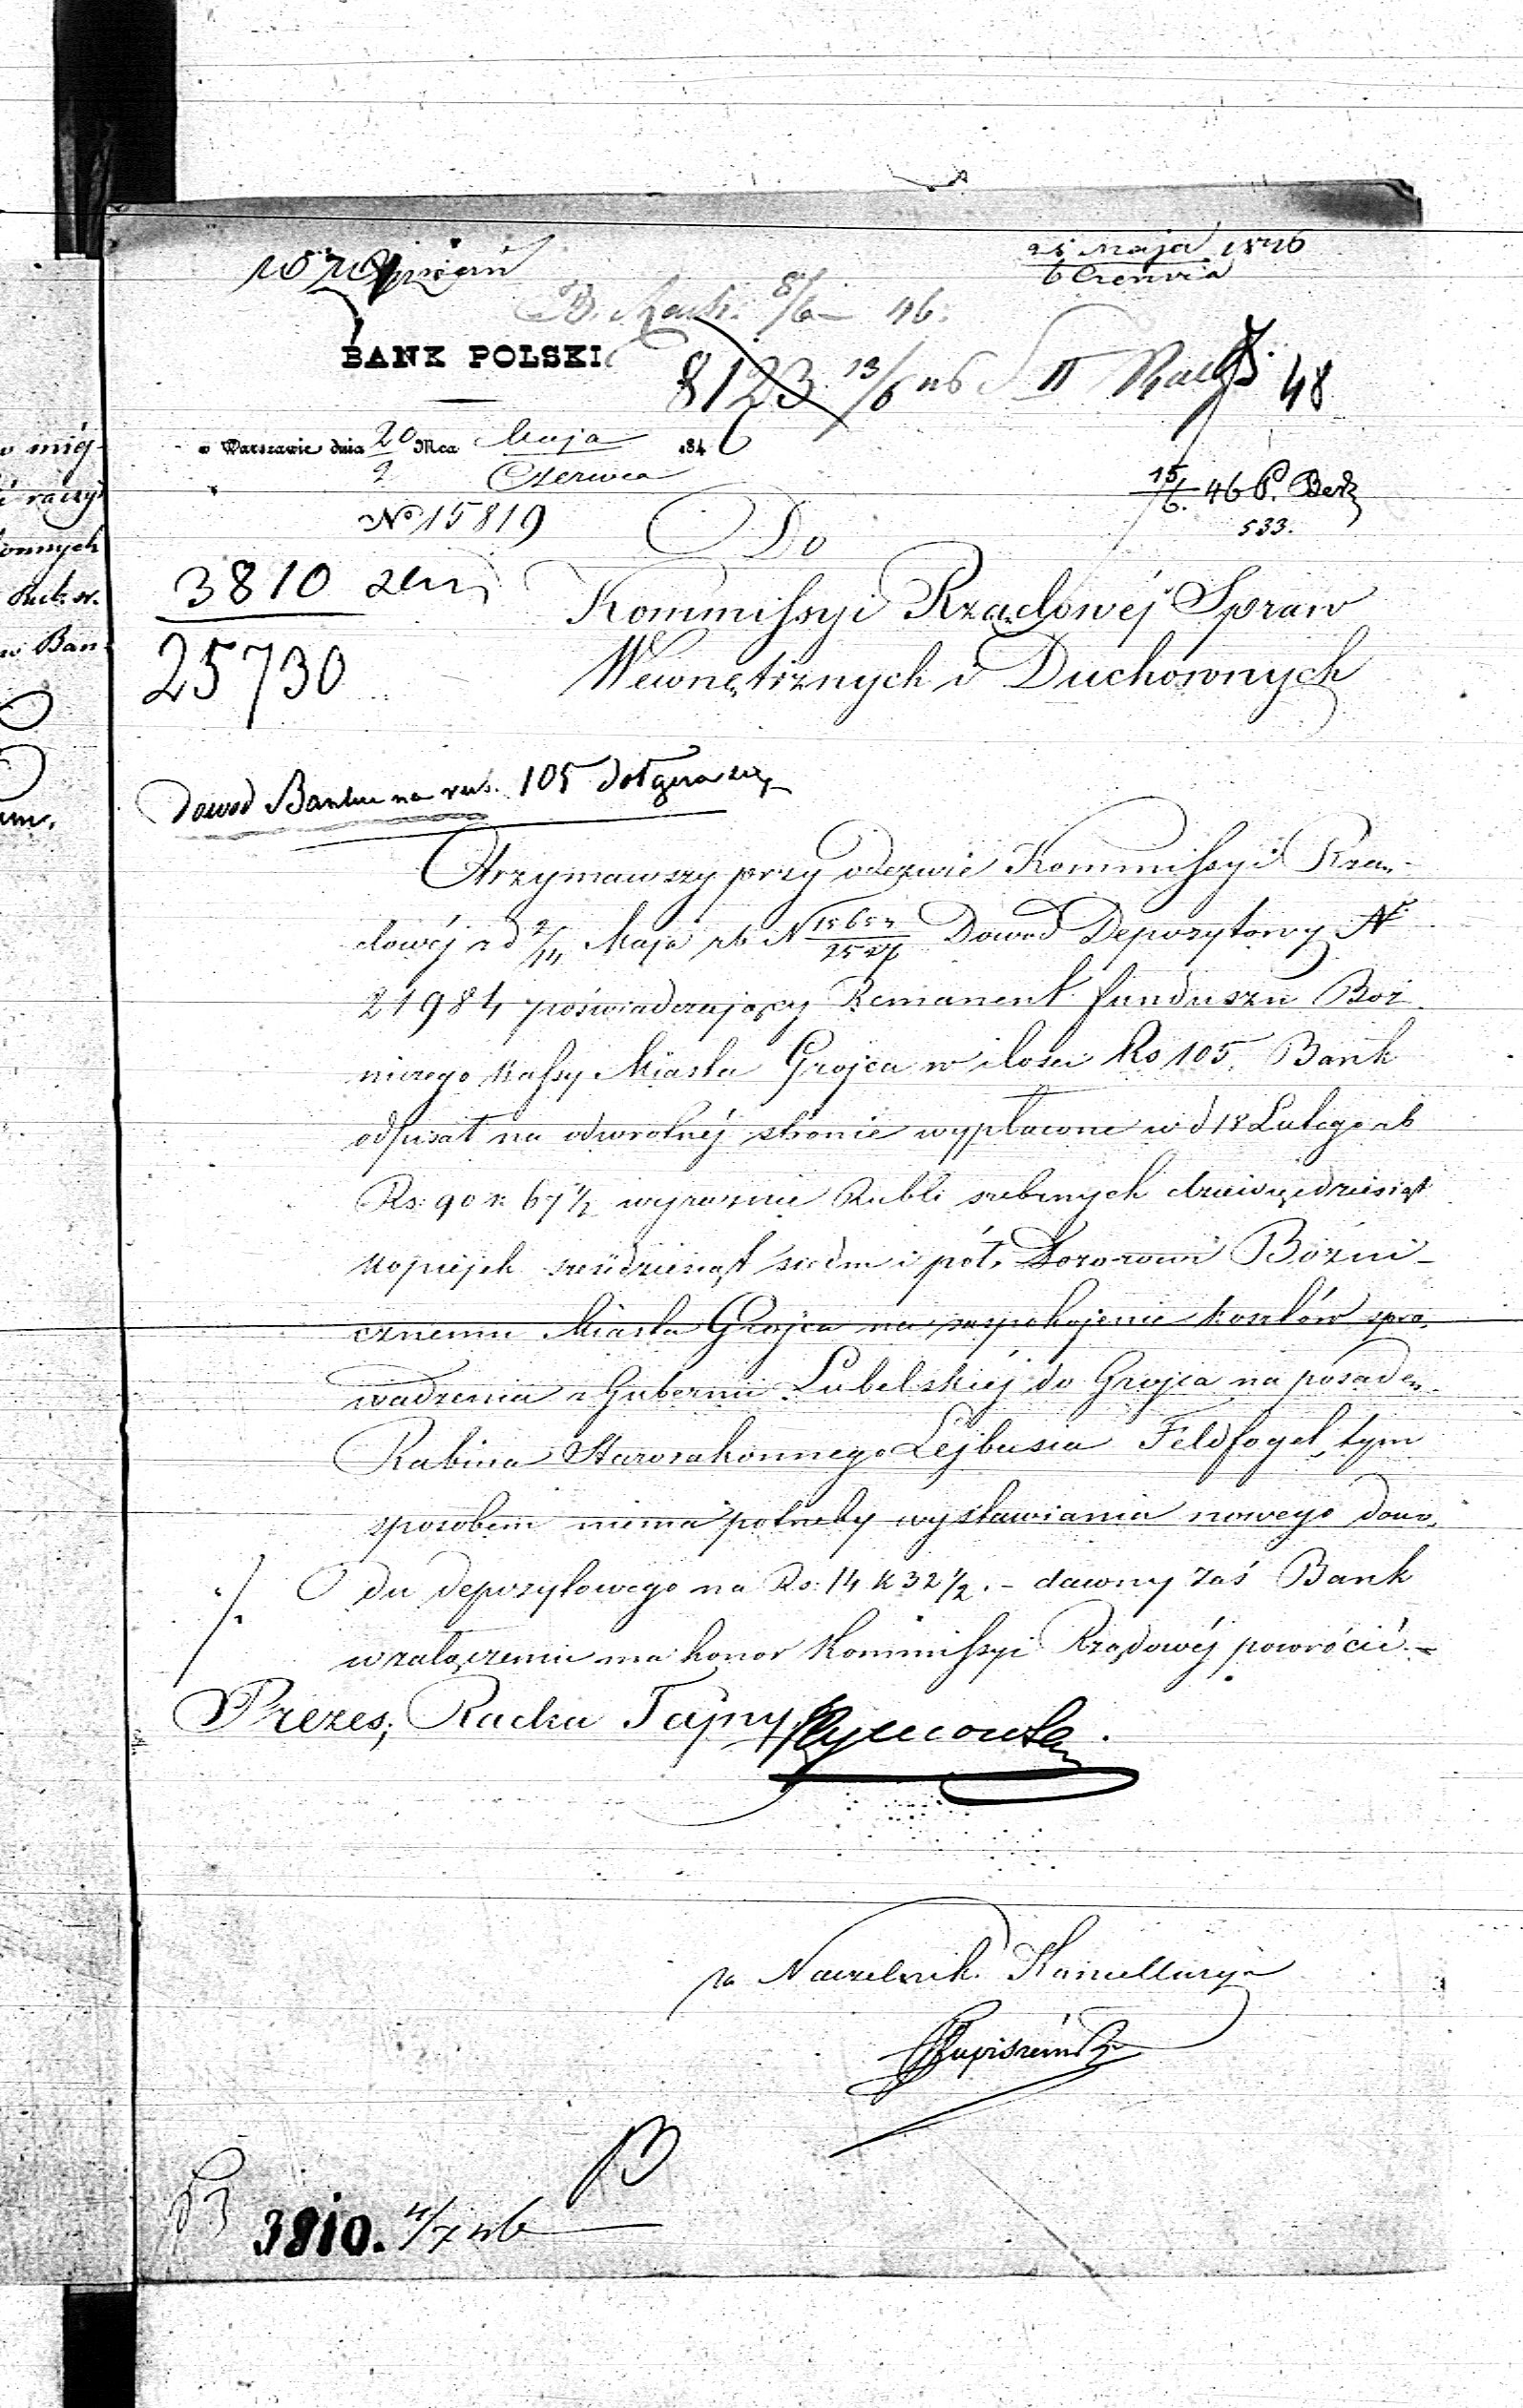 25 Maja 1846
6 Czerwca
8/6 46.
BANK POLSKI
8123 13/6 46 II 48
w Warszawie dnia 20 Mca Maja 1846
2 Czerwca
15/6. 46 P.
533.
No 15819
Do
3810
Kommissyi Rządowéj Spraw
25730
Wewnętrznych i Duchownych
Dowod Banku na rus. 105 dołącza się
Otrzymawszy przy odezwie Kommissyi Rzą-
dowéj z d 2/14 Maja rb N Dowod Depozytowy Nr
21984 poświadczający Remanent funduszu Boż
niczego Kassy Miasta Grojca w ilosci Rs 105, Bank
odpisał na odwrotnéj stronie wypłacone w d 18 Lutego rb
Rs: 90 k 67 1/2 wyraznie Rubli srebrnych dziewięćdziesiąt
kopiejek sześćdziesiąt siedm i pół, Dozorowi Bóżni-
cznemu Miasta Grojca na zaspokojenie kosztów spro-
wadzenia z Gubernii Lubelskiéj do Grojca na posadę
Rabina Starozakonnego Lejbusia Feldfogel, tym
sposobem niema potrzeby wystawiania nowego dowo-
du depozytowego na Rs: 14 k 32 1/2. – dawny zaś Bank
w załączeniu ma honor Kommissyi Rządowéj powrócić. –
Prezes, Radca Tajny
za Naczelnik Kancellaryi
3810. 4/7 46